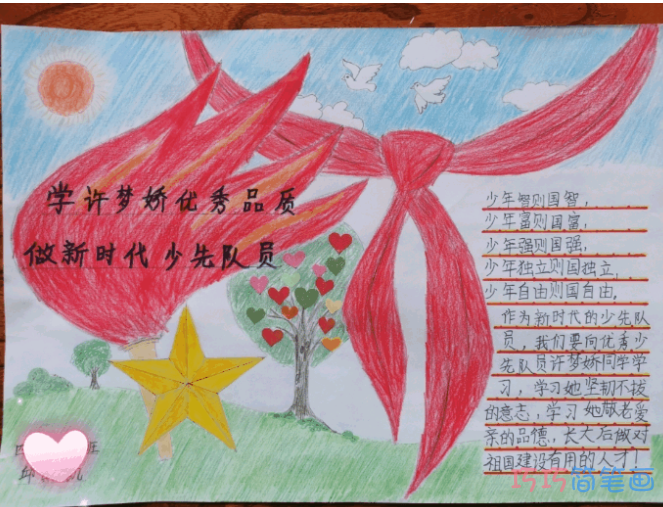 学许梦娇优秀品质
做新时代少先队员
少年智则国智，
少年富则国富，
少年强则国强，
少年独立则国独立，
少年自由则国自由。
作为新时代的少先队
员，我们要向优秀少
先队员许梦娇同学学
习，学习她坚韧不拔
的意志，学习她敬老爱
亲的品德，长大后做对
祖国建设有用的人才！
班
邱
巧巧简笔画